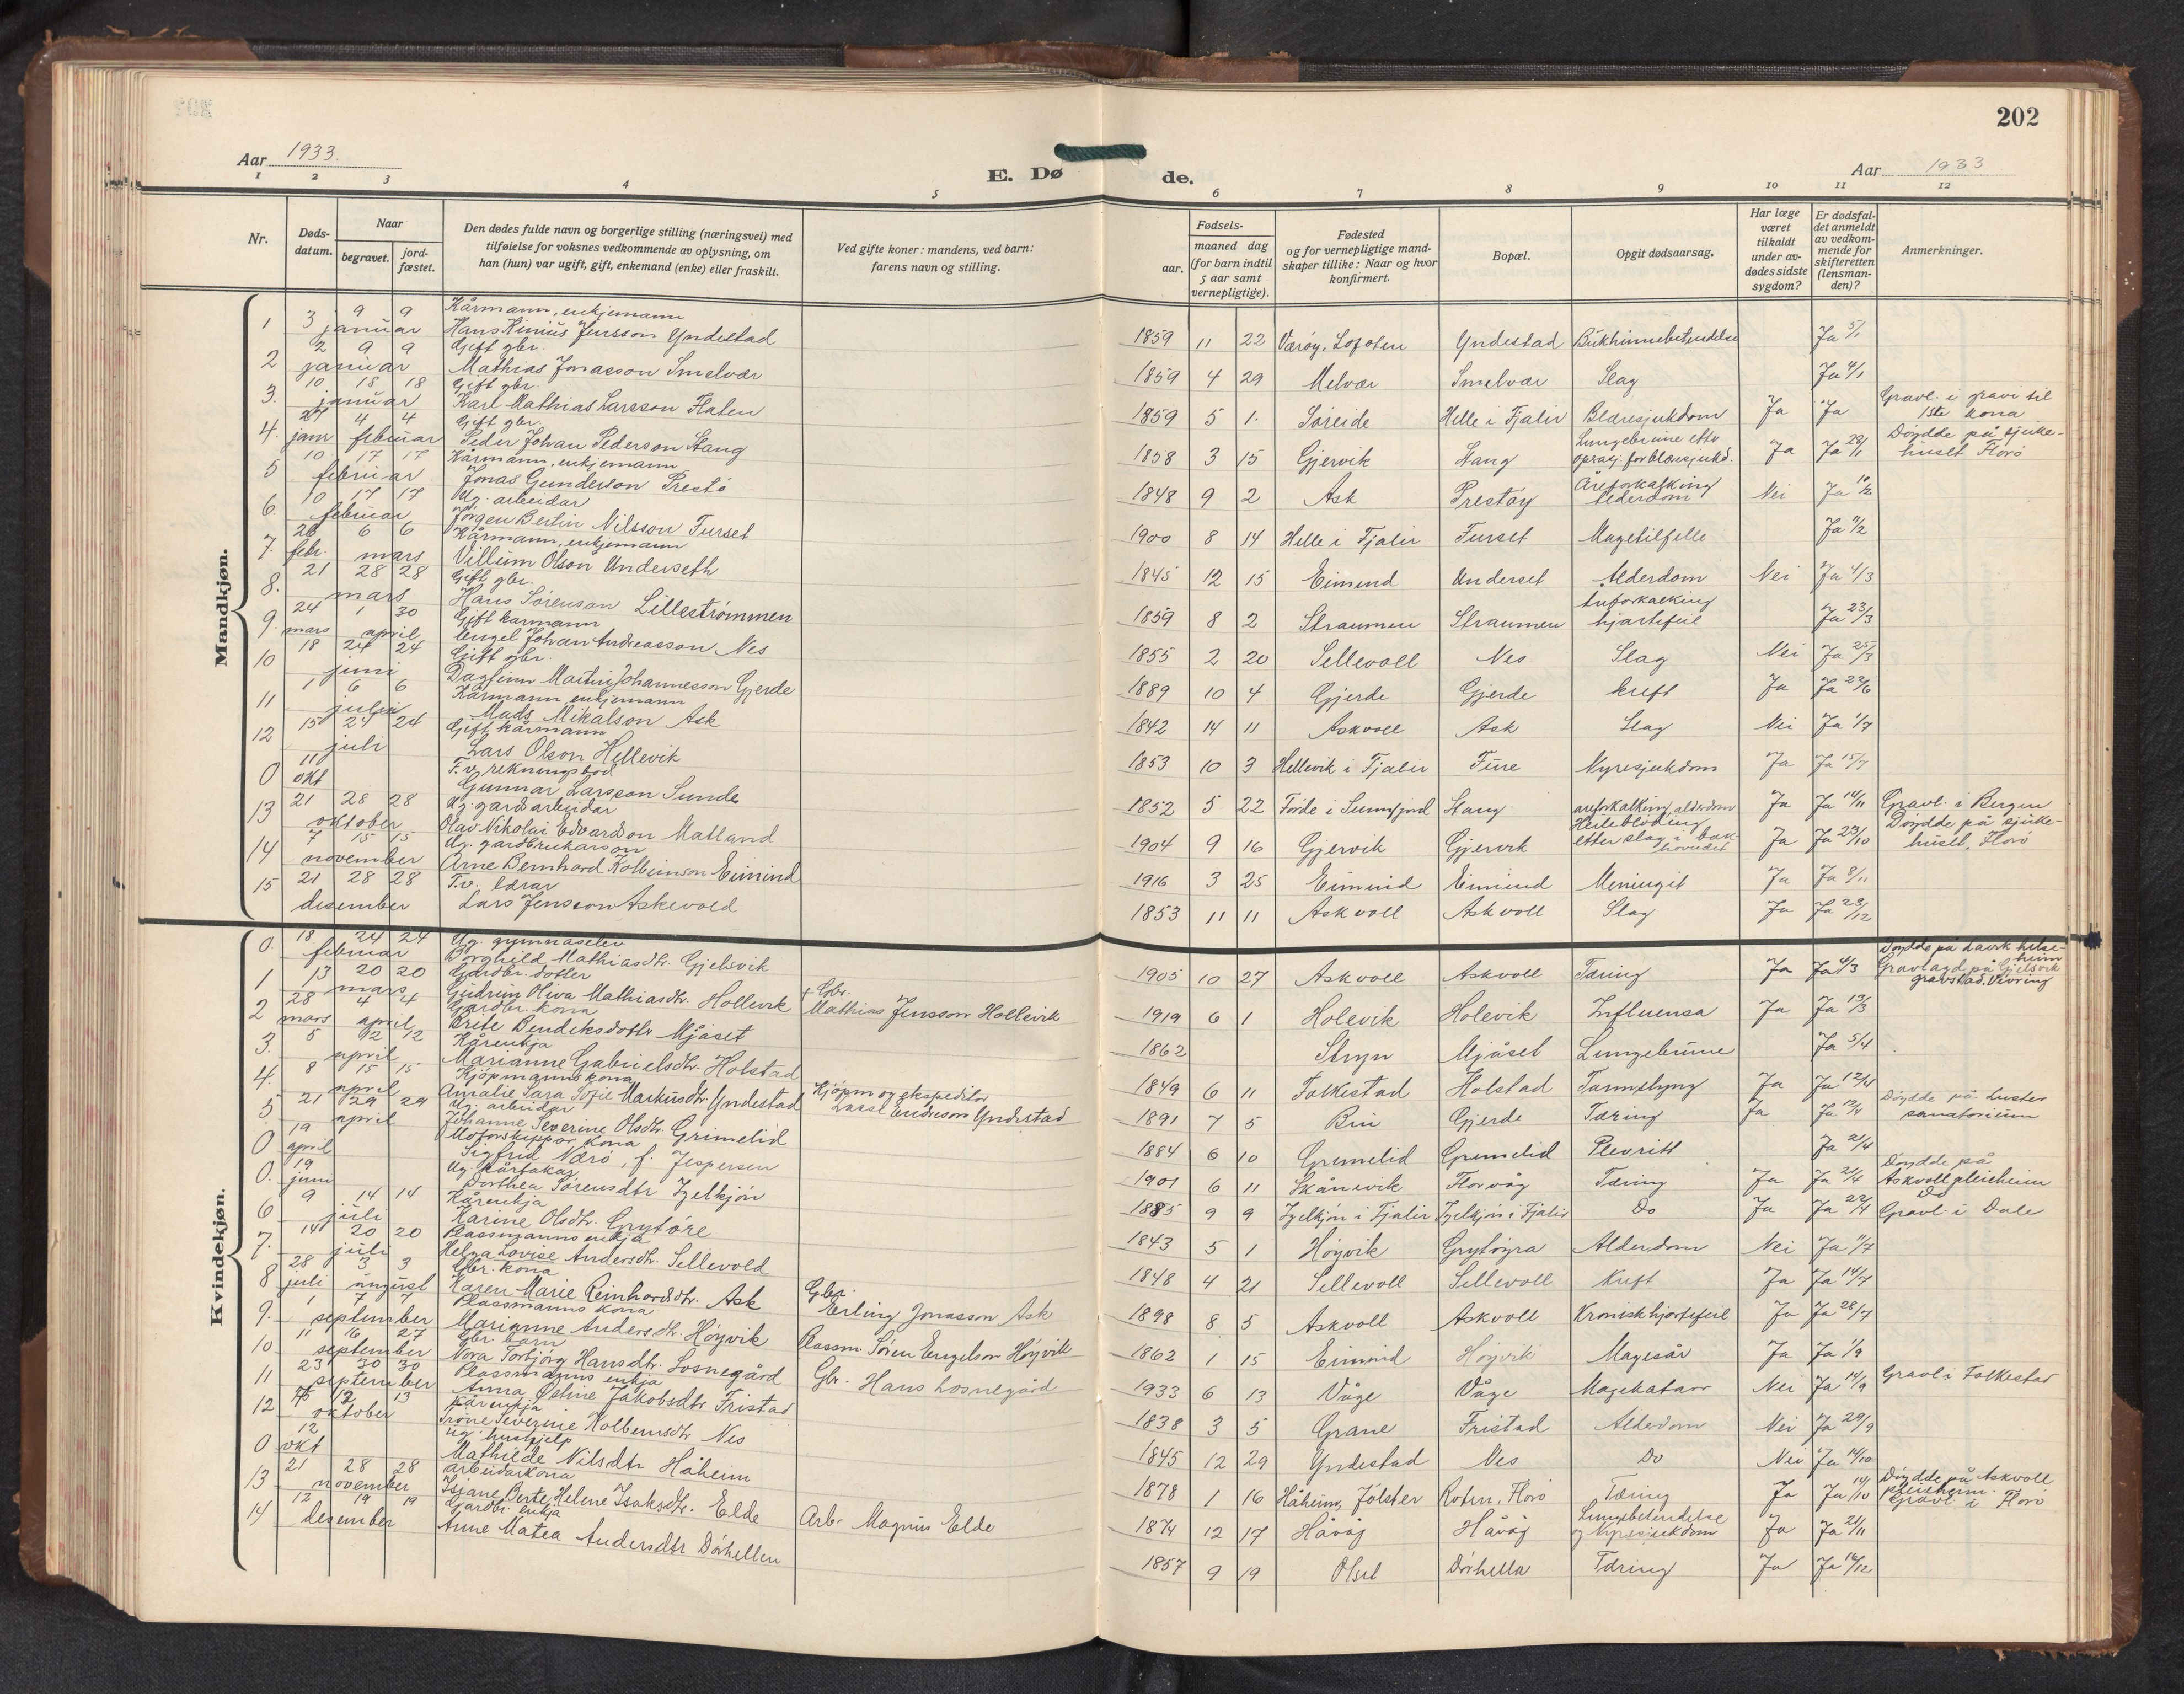 202
Aar 1933.
Aar 1933
E. Dø de.
1 2 3 4 5 6 7 8 9 10 11 12
Nr.
Døds-
datum.
Naar
begravet.
jord-
fæstet.
Den dødes fulde navn og borgerlige stilling (næringsvei) med
tilføielse for voksnes vedkommende av oplysning, om
han (hun) var ugift, gift, enkemand (enke) eller fraskilt.
Ved gifte koner: mandens, ved barn:
farens navn og stilling.
Fødsels-
aar.
maaned dag
(for barn indtil
5 aar samt
vernepligtige).
Fødested
og for vernepligtige mand-
skaper tillike: Naar og hvor
konfirmert.
Bopæl.
Opgit dødsaarsag.
Har læge
været
tilkaldt
under av-
dødes sidste
sygdom?
Er dødsfal-
det anmeldt
av vedkom-
mende for
skifteretten
(lensman-
den)?
Anmerkninger.
Mandkjøn.
1 3 januar 9 9 Kårmann, enkjemann
Hans Kinius Jensson Yndestad 1859 11 22 Værøy, Lofoten Yndestad Bukhinnebetendelse Ja 5/1
2 2 januar 9 9 Gift gbr.
Mathias Jonasson Smelvær 1859 4 29 Melvær Smelvær Slag Ja 4/1
3. 10 januar 18 18 Gift gbr.
Karl Mathias Larsson Flaten 1859 5 1. Søreide Helle i Fjalir Blæresjukdom Ja Ja Gravl. i gravi til
1ste kona
4. 27 janr 4 4 februar Gift gbr.
Peder Johan Pederson Stang 1858 3 15 Gjervik Stang Lungebrune etter
operasj. for blæresjukd. Ja Ja 28/1 Døydde på sjuke-
huset Florø
5 10 februar 17 17 Kårmann, enkjemann
Jonas Gunderson Prestø 1848 9 2 Ask Prestøy Åreforkalking
alderdom Nei Ja 10/2
6. 10 februar 17 17 Ug. arbeidar
Jørgen Bertin Nilsson Furset 1900 8 14 Helle i Fjalir Furset Magetilfelle Ja 11/2
7. 26 febr. 6 6 mars Kårmann, enkjemann
Villum Olson Underseth 1845 12 15 Eimind Underset Alderdom Nei Ja 4/3
8. 21 28 28 mars Gift gbr.
Hans Sørenson Lillestrømmen 1859 8 2 Straumen Straumen Åreforkalking
hjartefeil Ja 23/3
9. 24 mars 1 30 april Gift kårmann
Engel Johan Andreasson Nes 1855 2 20 Sellevoll Nes Slag Nei Ja 25/3
10 18 24 24 juni Gift gbr.
Dagfinn Martin Johannesson Gjerde 1889 10 4 Gjerde Gjerde kreft Ja Ja 22/6
11 1 6 6 juli Kårmann, enkjemann
Mads Mikalson Ask 1842 14 11 Askvoll Ask Slag Nei Ja 1/7
12 15 24 24 juli Gift kårmann
Lars Olson Hellevik 1853 10 3 Hellevik i Fjalir Fure Nyresjukdom Ja Ja 15/7
0 11 okt F.v. rekningsbod
Gunnar Larsson Sunde 1852 5 22 Førde i Sunnfjord Stang åreforkalking, alderdom Ja Ja 14/11 Gravl. i Bergen
13 21 28 28 oktober Ug. gardsarbeidar
Olav Nikolai Edvardson Matland 1904 9 16 Gjervik Gjervik Heileblöding
etter slag i bak-
hovudet Ja Ja 23/10 Døydde på sjuke-
huset, Florø
14 7 15 15 november Ug. gardbrukarson
Arne Bernhard Kolbeinson Eimind 1916 3 25 Eimind Eimind Meningit Ja Ja 8/11
15 21 28 28 desember F.v. lærar
Lars Jensson Askevold 1853 11 11 Askvoll Askvoll Slag Ja Ja 23/12
Kvindekjøn.
0. 18 24 24 februar Ug. gymnaselev
Borghild Mathiasdtr. Gjelsvik 1905 10 27 Askvoll Askvoll Tæring Ja Ja 4/3 Døydde på Lavik helse-
heim
Gravlagd på Gjelsvik
gravstad, Vevring
1 13 20 20 mars Gardbr. dotter
Gudrun Oliva Mathiasdtr. Hollevik + Gbr.
Mathias Jensson Hollevik 1919 6 1 Holevik Holevik Influensa Ja Ja 13/3
2 28 mars 4 4 april Gardbr. kona
Brite Bendiksdotter Mjåset 1862 Stryn Mjåset Lungebrune Ja 5/4
3. 5 12 12 april Kårenkja
Marianne Gabrielsdtr. Holstad 1849 6 11 Folkestad Holstad Tarmslyng Ja Ja 12/4
4. 8 15 15 april Kjöpmanns kona
Amalie Sara Sofie Markusdtr. Yndestad Kjöpm og ekspeditör
Lasse Endreson Yndestad 1891 7 5 Bru Gjerde Tæring Ja Ja 12/4 Døydde på Luster
sanatorium
5 21 29 29 april Ug. arbeidar
Johanne Severine Olsdtr. Grimelid 1884 6 10 Grimelid Grimelid Plevritt Ja 21/4
0 19 april Motorskippar kona
Sigfrid Nærø, f. Jespersen 1901 6 11 Skånevik Florvåg Tæring Ja Ja 21/4 Døydde på
Askvoll pleieheim
0. 19 juni Ug. kårtakar
Dorthea Sørensdtr Igelkjøn 1885 9 9 Igelkjön i Fjalir Igelkjön i Fjalir Do Ja Ja 22/4 Do
Gravl. i Dale
6 9 14 14 juli Kårenkja
Karine Olsdtr. Grytöre 1843 5 1 Høyvik Grytøyra Alderdom Nei Ja 11/7
7. 14 20 20 juli Plassmanns enkja
Helga Lovise Andersdtr. Sellevold 1848 4 21 Sellevoll Sellevoll Kreft Ja Ja 14/7
8 28 juli 3 3 august Gbr. kona
Karen Marie Reinhardsdtr. Ask Gbr.
Erling Jonasson Ask 1898 8 5 Askvoll Askvoll Kronisk hjartefeil Ja Ja 28/7
9. 1 7 7 september Plassmanns kona
Marianne Andersdtr. Høyvik Plassm. Søren Engelson Høyvik 1862 1 15 Eimind Høyvik Magesår Ja Ja 1/9
10 11 16 27 september Gbr. barn
Nora Torbjørg Hansdtr. Losnegård Gbr. Hans Losnegård 1933 6 13 Våge Våge Magekatarr Nei Ja 14/9 Gravl i Folkestad
11 23 30 30 september Plassmanns enkja
Anna Østine Jakobsdtr Fristad 1838 3 5 Grane Fristad Alderdom Nei Ja 29/9
12 12 13 oktober Kårenkja
Severine Kolbeinsdtr Nes 1845 12 29 Yndestad Nes Do Nei Ja 14/10
0 12 okt Ug. hushjelp
Mathilde Nilsdtr Håheim 1878 1 16 Håheim, Jølster Florø Tæring Ja Ja 14/10 Døydde på Askvoll
pleieheim.
Gravl. i Florø
13 21 28 28 november Arbeidarkona
Berte Helene Isaksdtr. Elde Arb. Magnus Elde 1874 12 17 Håvåg Håvåg Lungebetendelse
og Nyresjukdom Ja Ja 21/11
14 12 19 19 desember Gardbr. enkja
Anne Matea Andersdtr Dørhellen 1857 9 19 Olset Dörhella Tæring Ja Ja 16/12